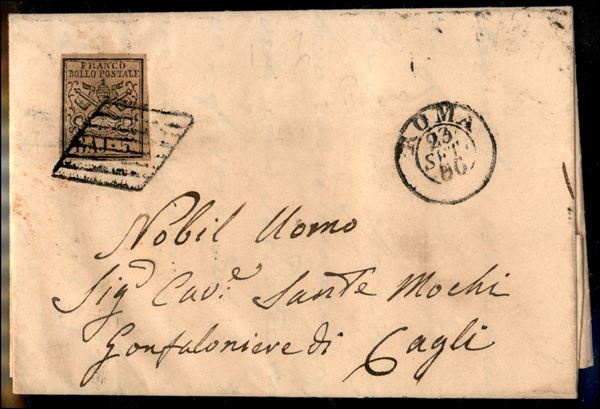 FRANCO
BOLLO POSTALE
BAI.
ROMA
23
SET.
Nobil Uomo
Sig.ͬ Cav.ͤ Sante Mochi
Gonfaloniere di Cagli